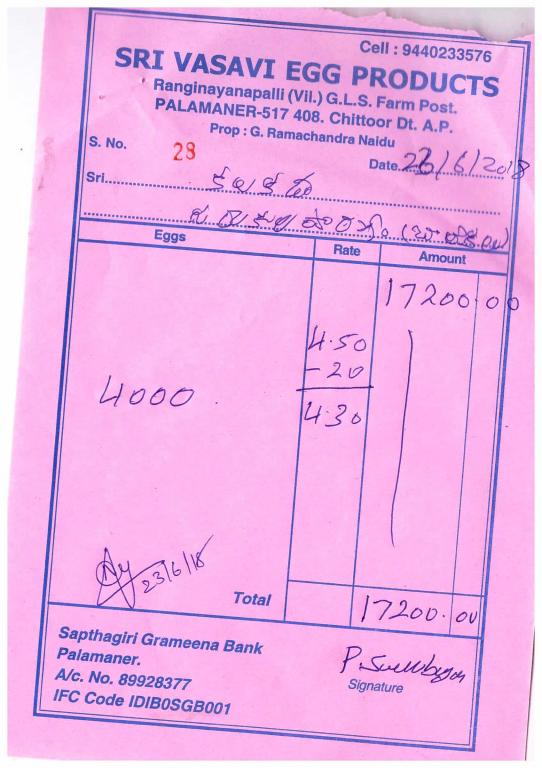 Cell : 9440233576
SRI VASAVI EGG PRODUCTS
Ranginayanapalli (Vil.) G.L.S. Farm Post.
PALAMANER-517 408. Chittoor Dt. A.P.
Prop : G. Ramachandra Naidu
S. No. 28
Date 23/6/2018
Sri
Eggs Rate Amount
17200.00
4.50
-20
4000 4.30
23/6/18
Total 17200.00
Sapthagiri Grameena Bank
Palamaner.
A/c. No. 89928377
IFC Code IDIB0SGB001
Signature